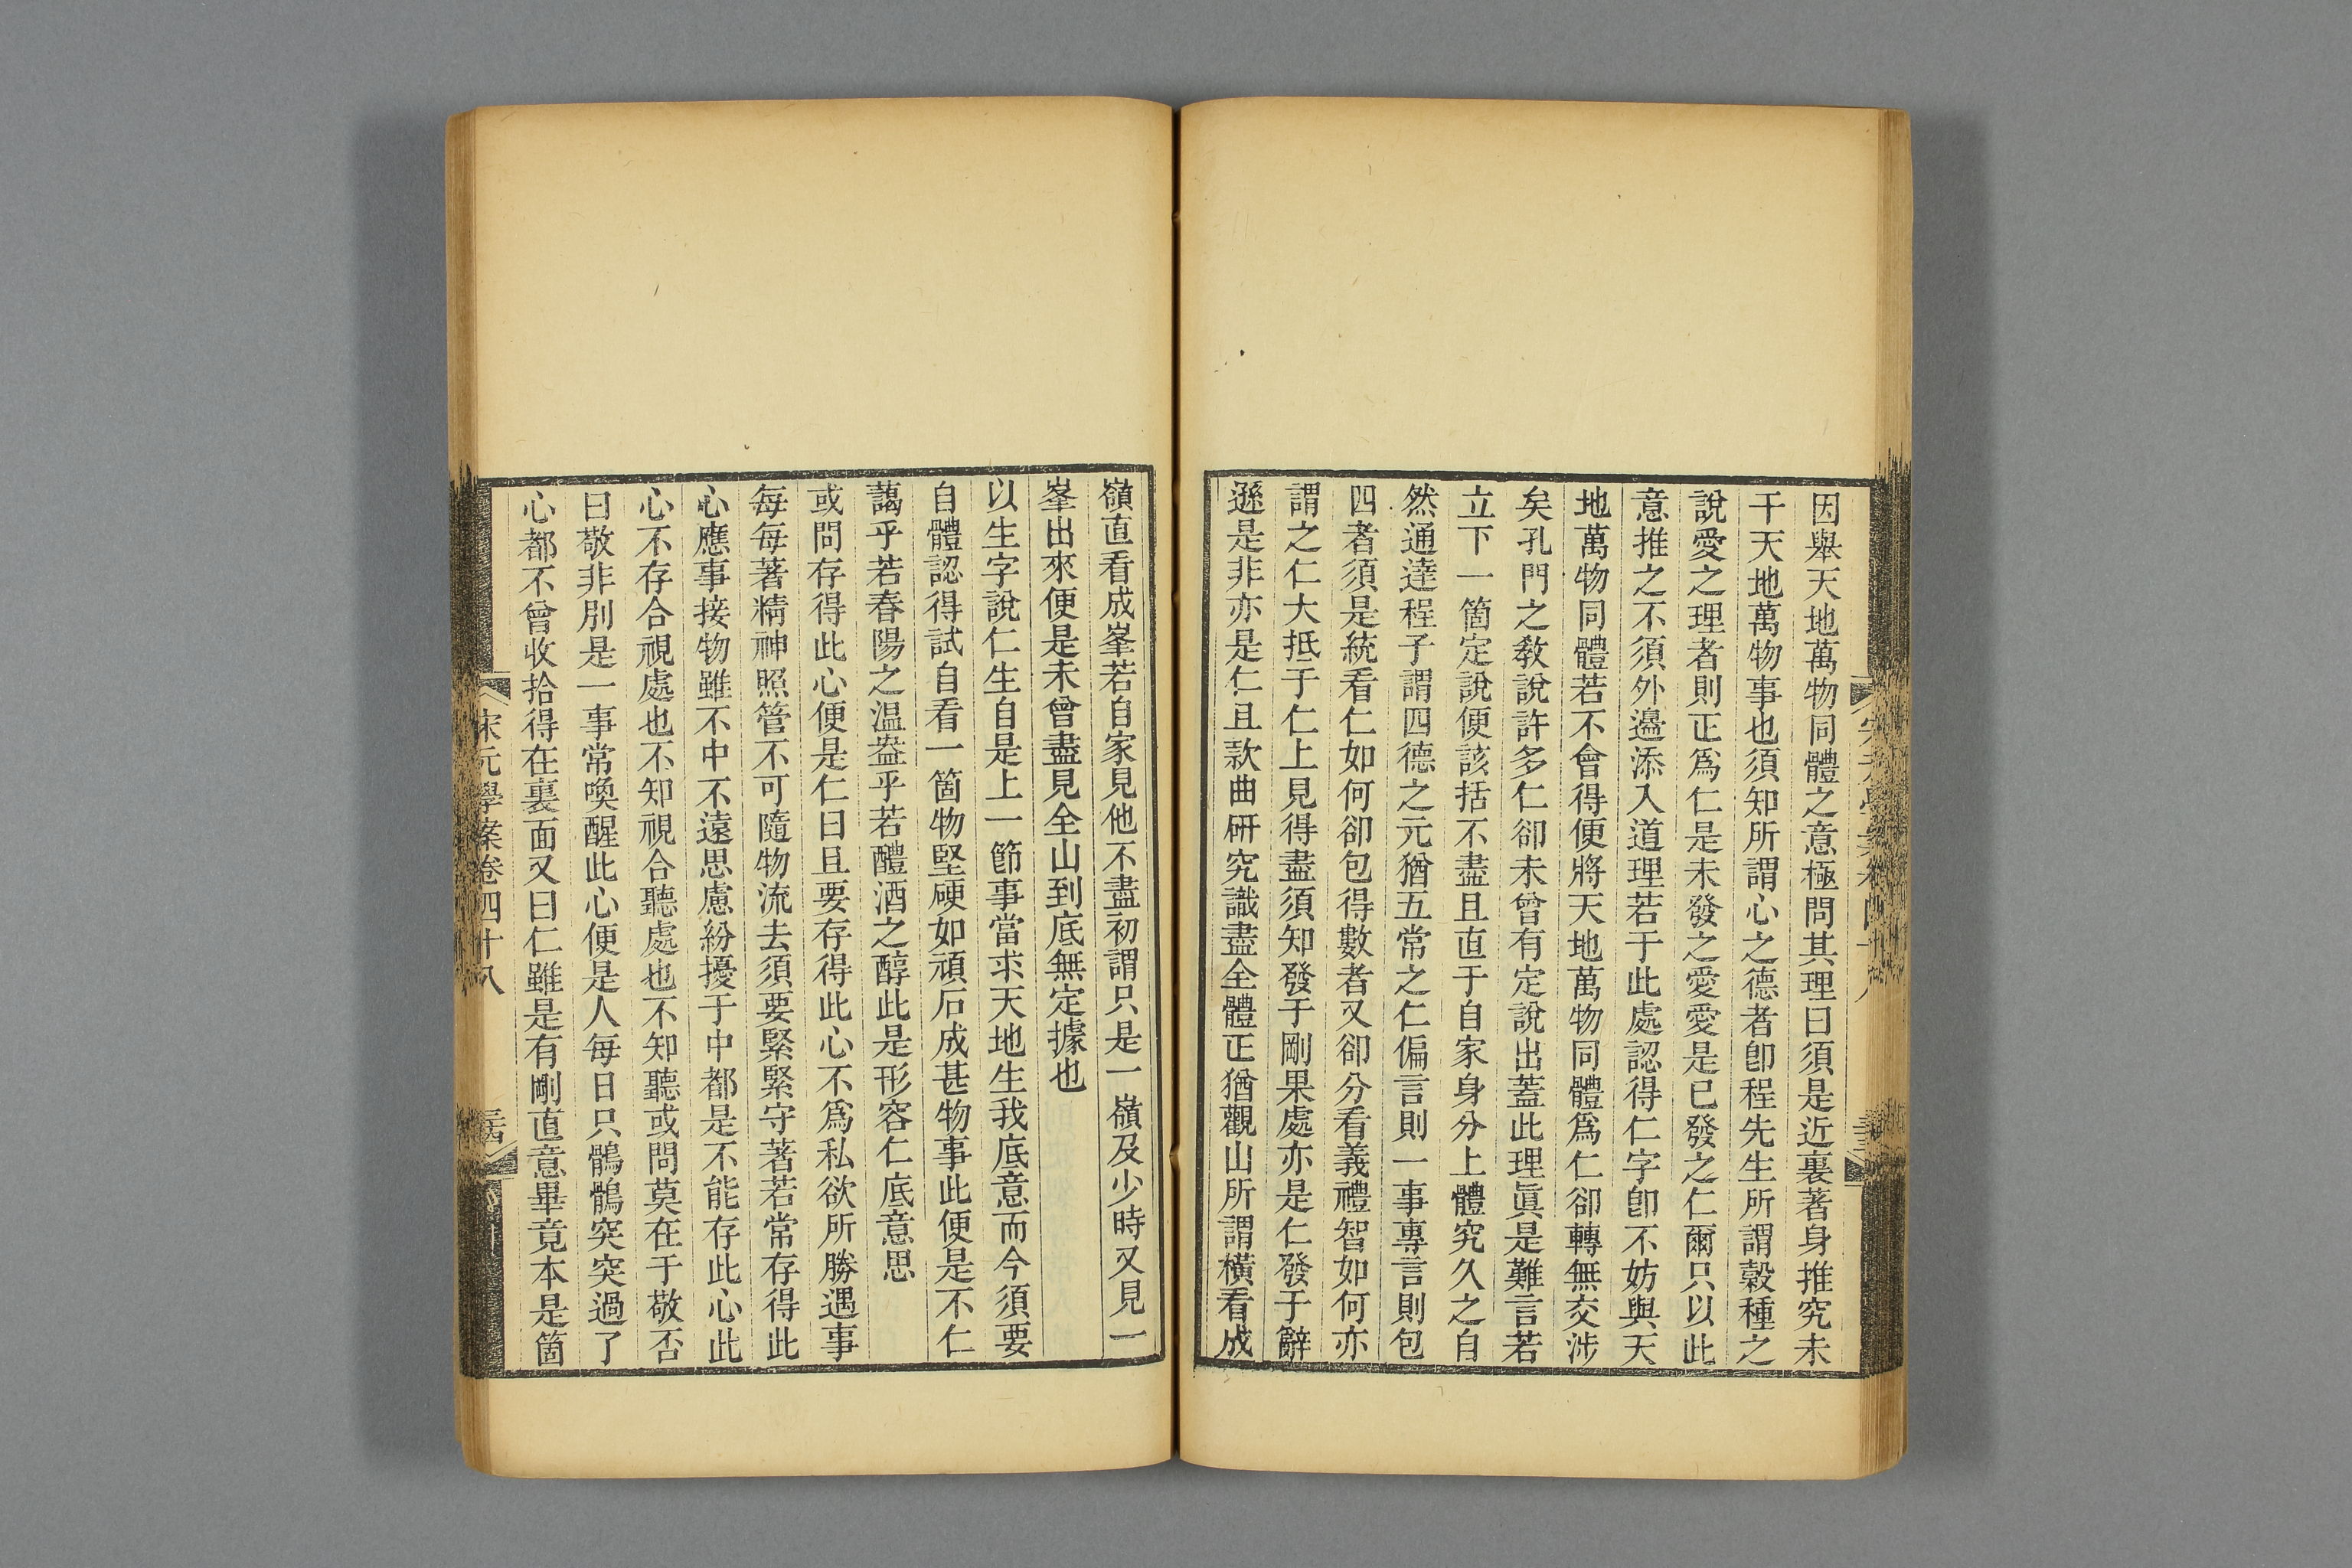 因舉天地萬物同體之意極問其理曰須是近裏著身推究未
干天地萬物事也須知所謂心之德者卽程先生所謂穀種之
說愛之理者則正爲仁是未發之愛愛是已發之仁爾只以此
意推之不須外邊添入道理若于此處認得仁字卽不妨與天
地萬物同體若不會得便將天地萬物同體爲仁卻轉無交涉
矣孔門之敎說許多仁卻未曾有定說出蓋此理眞是難言若
立下一箇定說便該括不盡且直于自家身分上體究久之自
然通達程子謂四德之元猶五常之仁偏言則一事專言則包
四者須是統看仁如何卻包得數者又卻分看義禮智如何亦
謂之仁大抵于仁上見得盡須知發于剛果處亦是仁發于辭
遜是非亦是仁且款曲硏究識盡全體正猶觀山所謂橫看成
嶺直看成峯若自家見他不盡初謂只是一嶺及少時又見一
峯出來便是未曾盡見全山到底無定據也
以生字說仁生自是上一節事當求天地生我底意而今須要
自體認得試自看一箇物堅硬如頑石成甚物事此便是不仁
藹乎若春陽之温盎乎若醴酒之醇此是形容仁底意思
或問存得此心便是仁曰且要存得此心不爲私欲所勝遇事
每每著精神照管不可隨物流去須要緊緊守著若常存得此
心應事接物雖不中不遠思慮紛擾于中都是不能存此心此
心不存合視處也不知視合聽處也不知聽或問莫在于敬否
曰敬非別是一事常喚醒此心便是人每日只鶻鶻突突過了
心都不曾收拾得在裏面又曰仁雖是有剛直意畢竟本是箇
宋元學案卷四十八